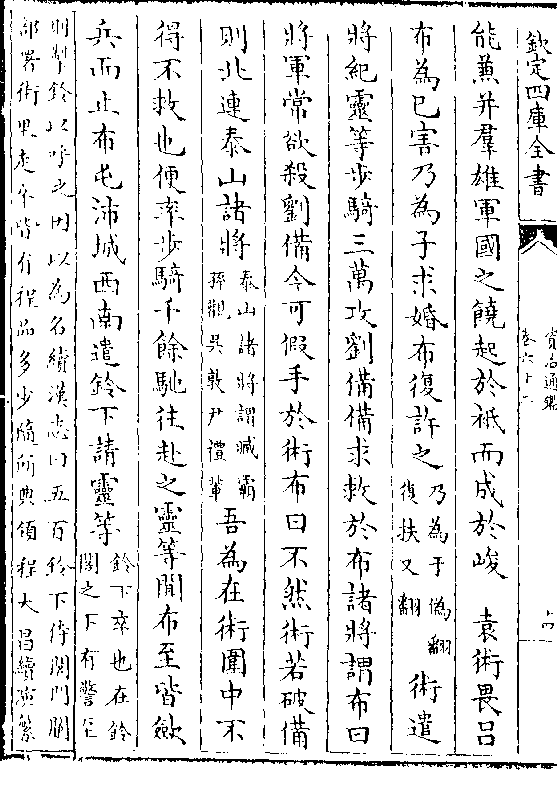 欽定四庫全書
資治通鑑
卷六十二
十四
能兼并羣雄軍國之饒起於祗而成於峻　袁術畏呂
布為已害乃為子求婚布復許之乃為于偽翻復扶又翻術遣
將紀靈等步騎三萬攻劉備備求救於布諸將謂布曰
將軍常欲殺劉備今可假手於術布曰不然術若破備
則北連泰山諸將泰山諸將謂臧霸孫觀吳敦尹禮輩吾為在術圍中不
得不救也便率步騎千餘馳往赴之靈等聞布至皆歛
兵而止布屯沛城西南遣鈴下請靈等鈴下卒也在鈴閣之下有警至
則掣鈴以呼之因以為名續漢志曰五百鈴下侍閤門闌
部署街里走卒皆有程品多少隨所典領程大昌續演繁